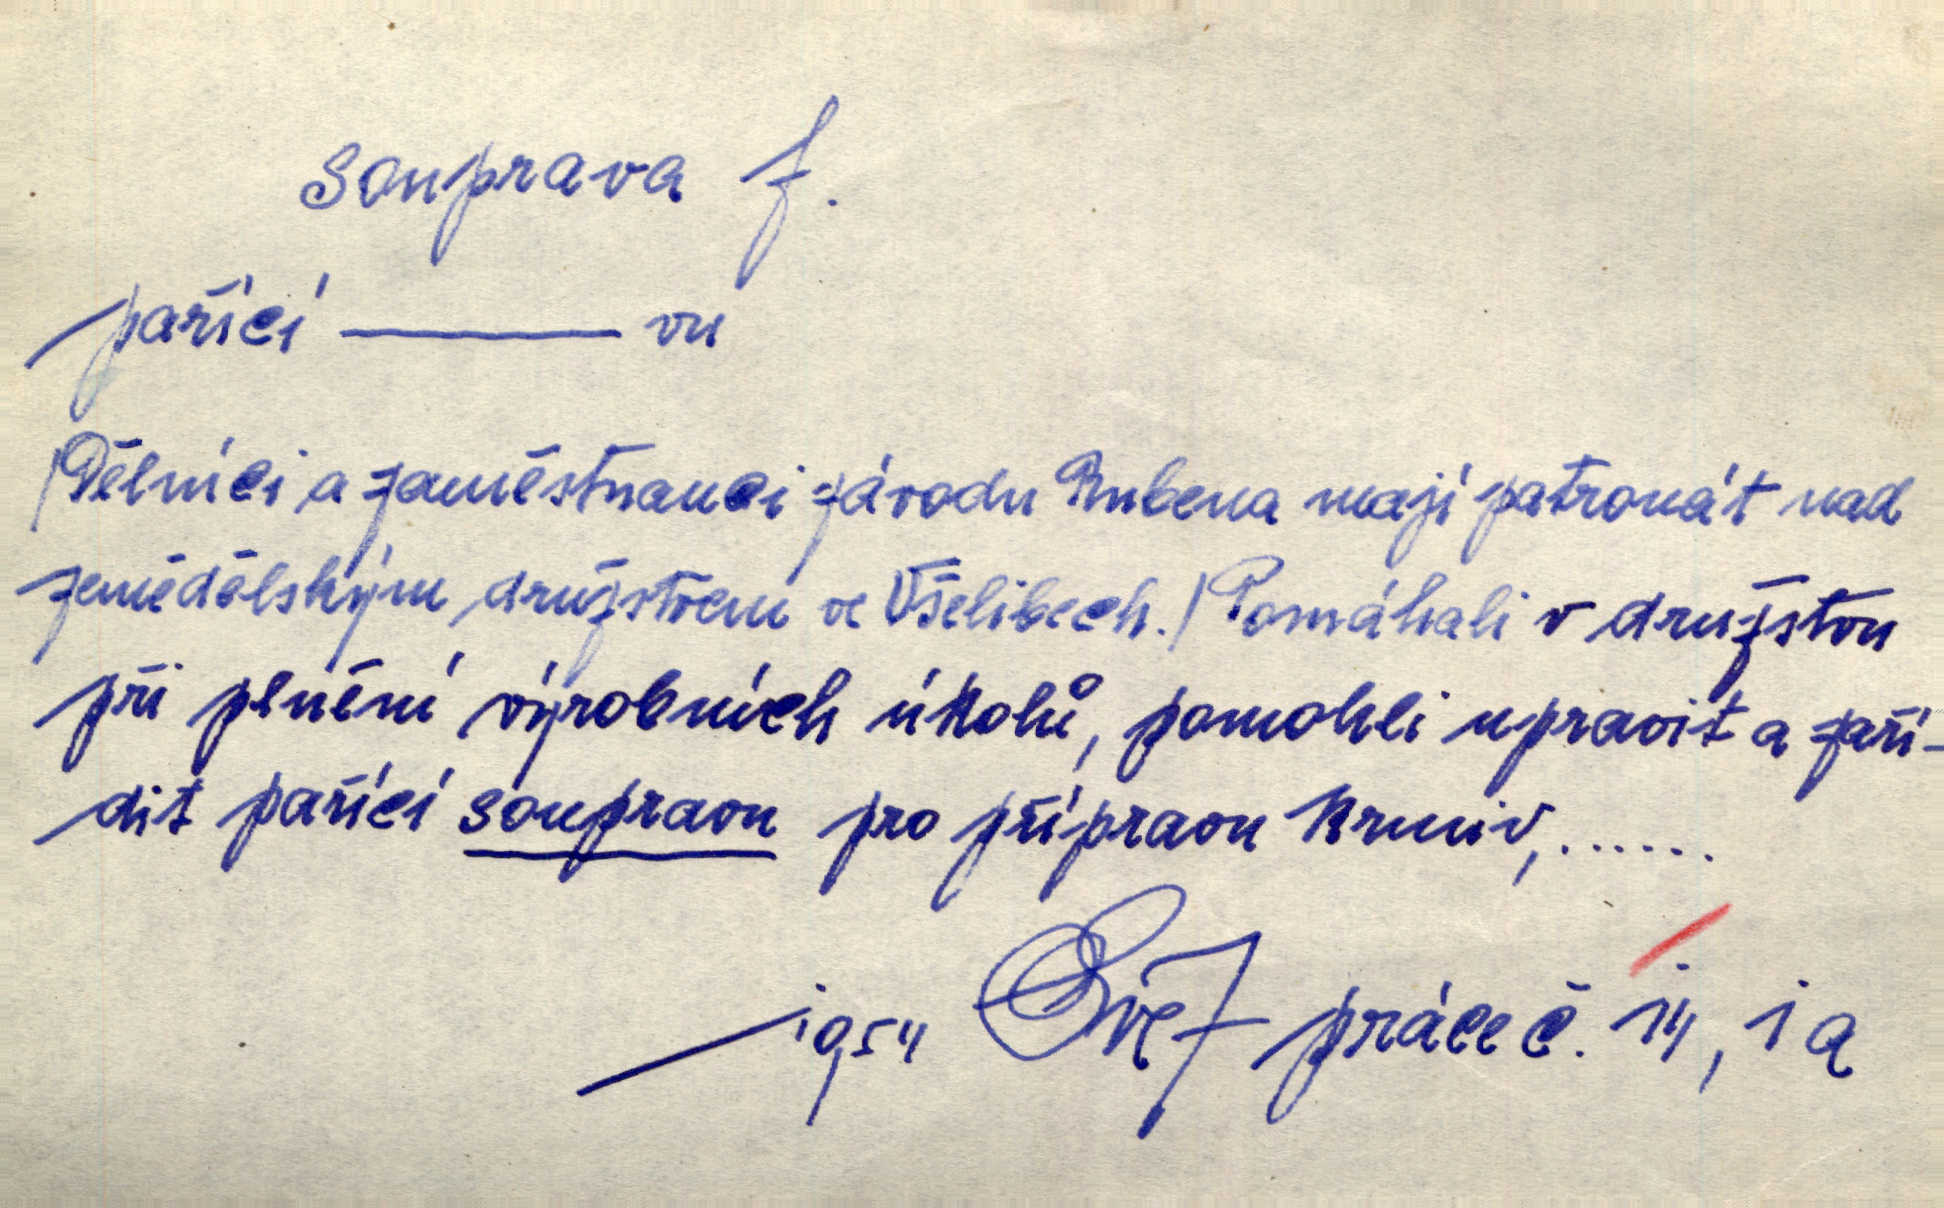 souprava f.
pařící ——— vu
/Dělníci a zaměstnanci závodu Rubena mají patronát nad
zemědělským družstvem ve Všelibech./ Pomáhali v družstvu
při plnění výrobních úkolů, pomohli upravit a zaří-
dit pařící soupravu pro přípravu krmiv,......
1954 Svět práce č. 14, 1a